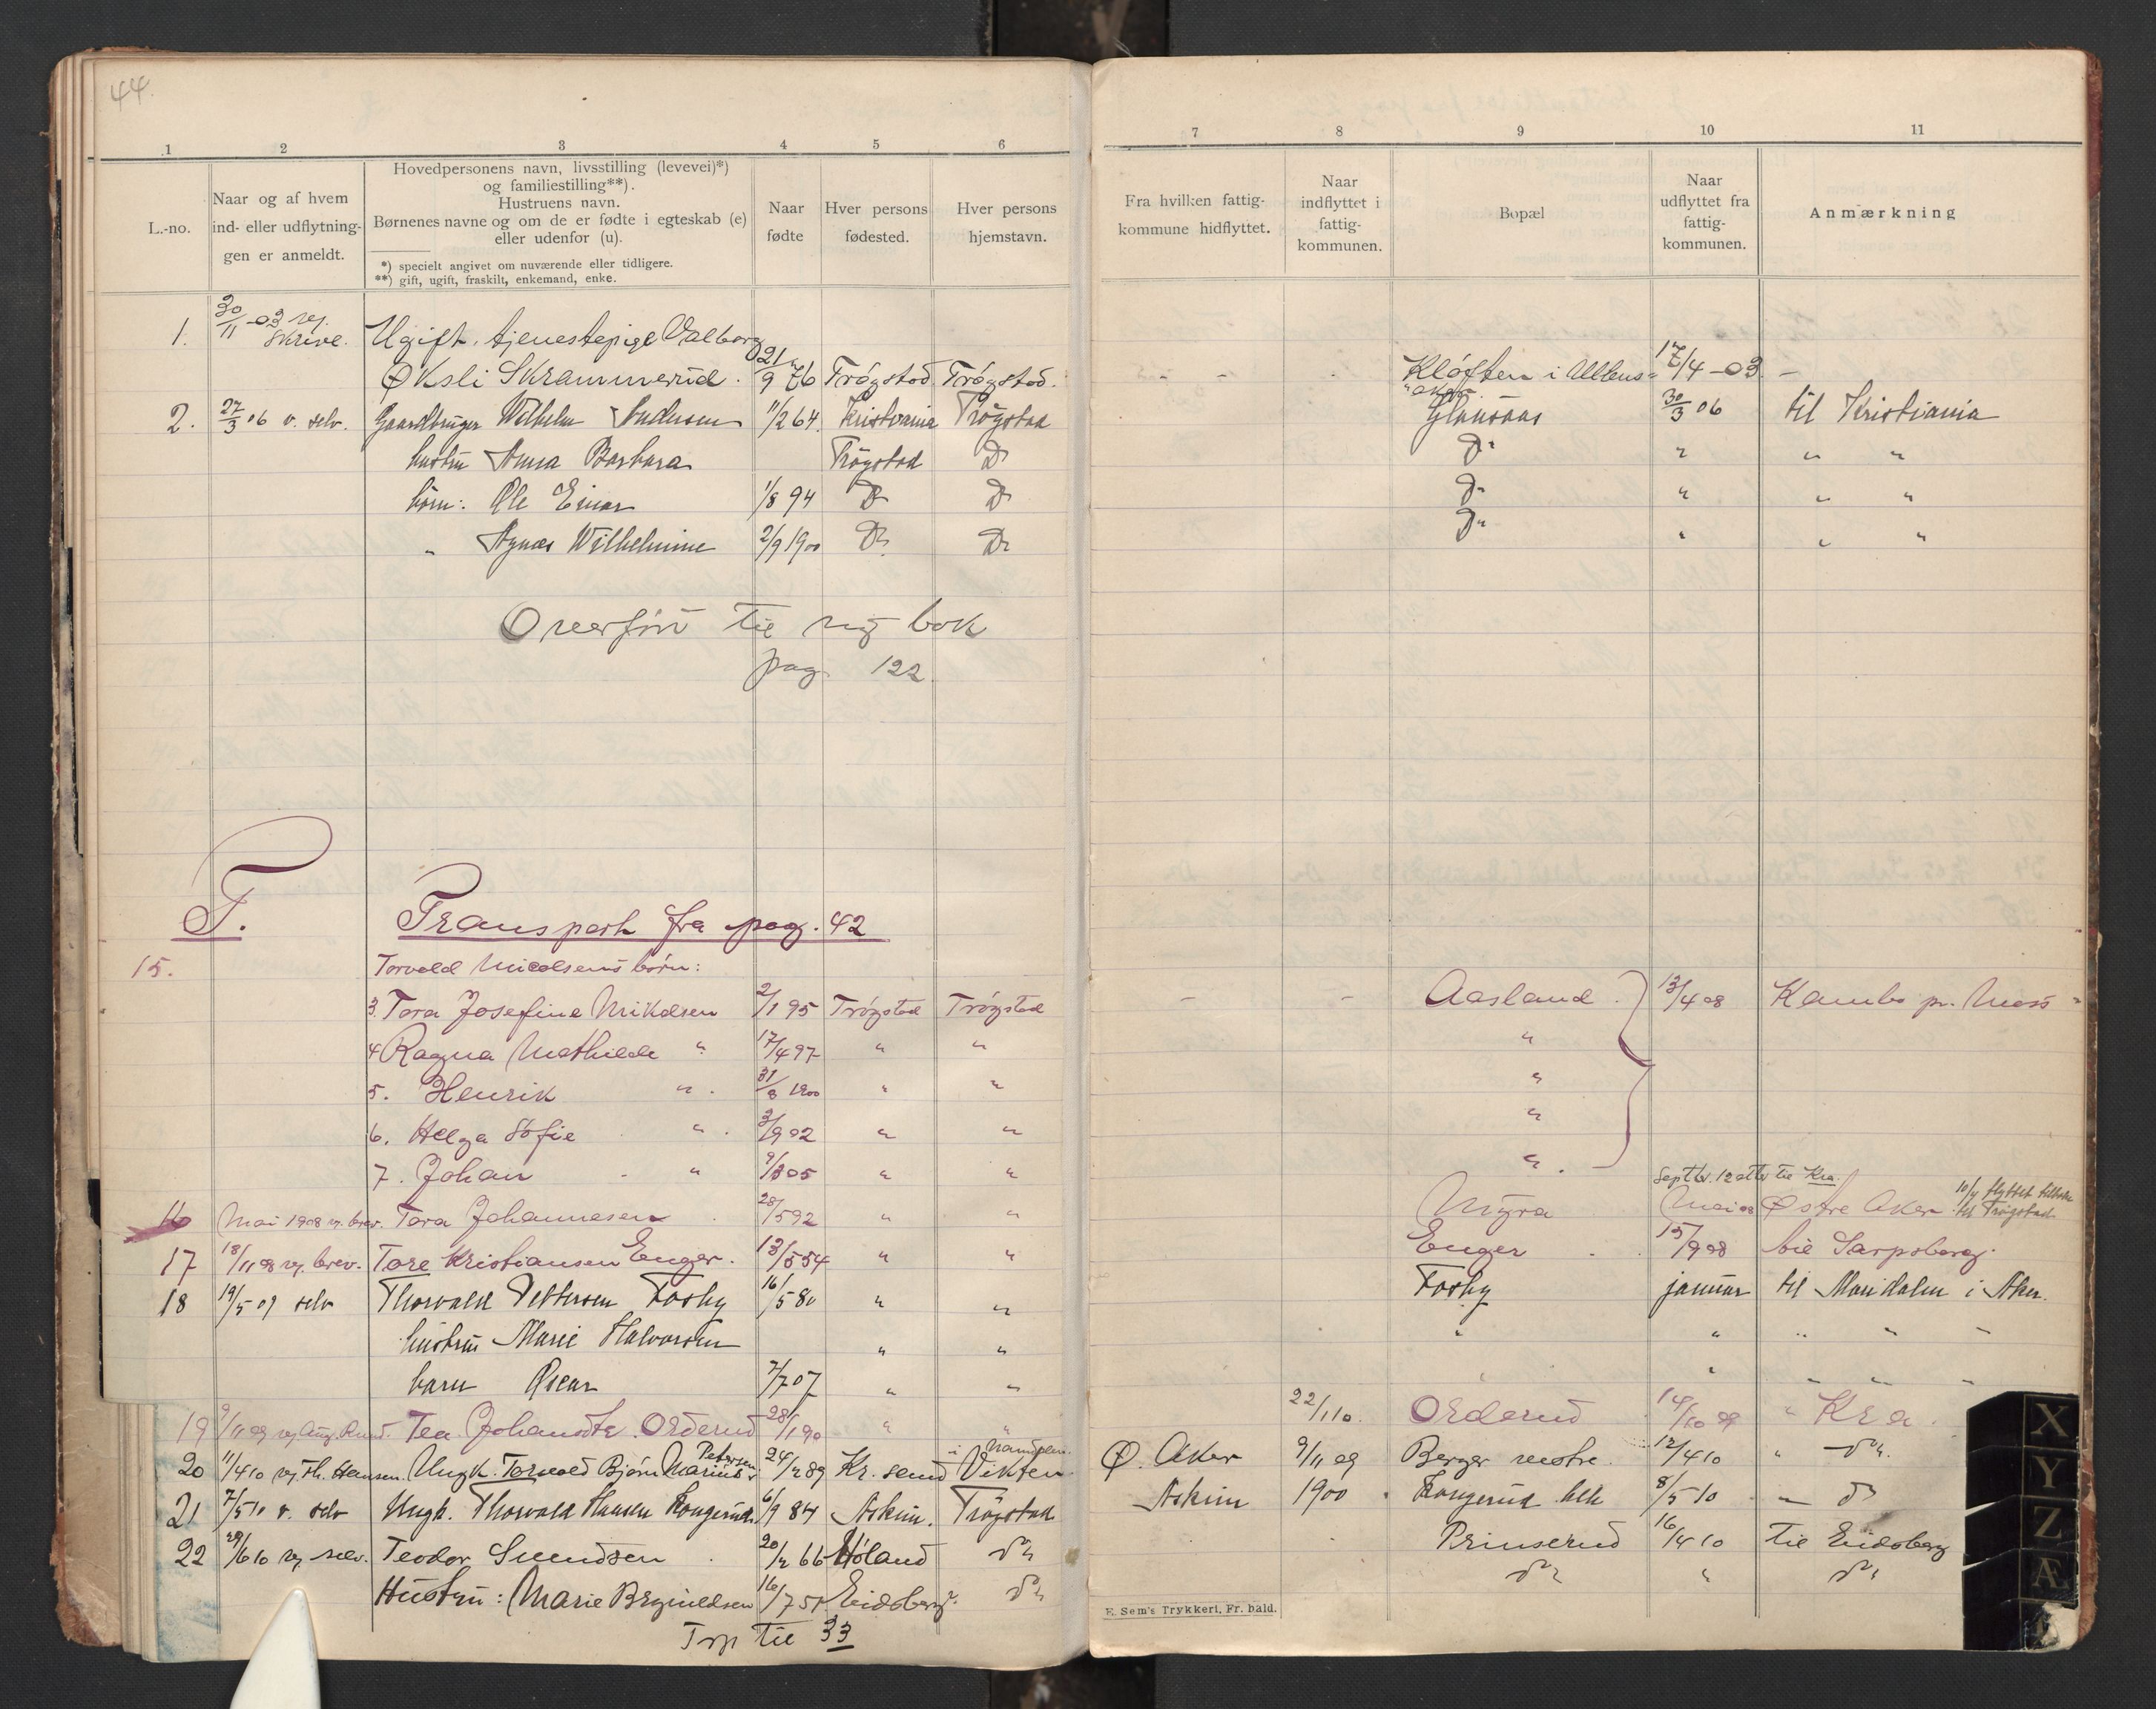 44.
1 2 3 4 5 6
L.-no.
Naar og af hvem
ind- eller udflytnin-
gen er anmeldt.
Hovedpersonens navn, livsstilling (levevei)*)
og familiestilling**).
Hustruens navn.
Børnenes navne og om de er fødte i egteskab (e)
eller udenfor (u).
*) specielt angivet om nuværende eller tidligere.
**) gift, ugift, fraskilt, enkemand, enke.
Naar
fødte
Hver persons
fødested.
Hver persons
hjemstavn.
1. 30/11 -03 vej. skrive. Ugift. tjenestepige Valborg
Øksli Skrammerud. 21/9 76 Trøgstad Trøgstad.
2. 27/3 06 v. selv. Gaardbruger Wilhelm Andersen 11/2 64. Kristiania Trøgstad
hustru Anna Barbara Trøgstad Do
børn: Ole Einar 1/8 94 Do Do
" Agnes Wilhelmine 2/9 1900 Do Do
Overført til ny bok
pag. 122
T. Transport fra pag. 42
15. Torvald Nicolsens børn:
3. Tora Josefine Mikalsen 2/1 95 Trøgstad Trøgstad
4 Ragna Mathilde " 17/4 97 " "
5. Henrik " 31/8 1900 " "
6. Helga Sofie " 3/9 02 " "
7. Johan " 9/3 05 " "
16 Mai 1908 v. brev. Tora Johannesen 28/5 92 " "
17 18/11 08 vj. brev. Tore Kristiansen Enger. 13/5 54 " "
18 19/5 09 selv Thorvald Pettersen Fosby 16/5 80 " "
hustru Marie Halvorsen " "
barn Oscar 7/7 07 " "
19 9/11 09 vj Aug. Rund. Tea Johansdtr. Orderud 28/1 90 " "
20 11/4 10 vj Th. Hansen. Ungk. Torvald Bjørn Marius Petersen 24/2 89 Kr. sund Vikten i Namdalen.
21 7/5 10 v. selv Ungk. Thorvald Hansen Kongerud 6/9 84 Askim. Trøgstad
22 29/6 10 vj selv. Teodor Svendsen 20/2 66 Høland do
Hustru: Marie Brynildsen 16/7 51 Eidsberg. do
Trp til 33
7 8 9 10 11
Fra hvilken fattig-
kommune hidflyttet.
Naar
indflyttet i
fattig-
kommunen.
Bopæl
Naar
udflyttet fra
fattig-
kommunen.
Anmærkning
- - - Kløften i Ullens- 17/4 -03. -
"aker
Glansaas 30/3 06 til Kristiania
Do " " "
Do " " "
Do " " "
- - Aasland. 13/4 08 Kambo pr. Moss
"
"
"
" .
Septbr. 12 atter til Kra.
Myra Mai 08 Østre Aker 10/4 flyttet tilbake til Trøgstad
Enger 15/9 08 til Sarpsborg.
Fosby januar til Maridalen i Aker.
" " " " "
" " " "
22/1 10. Orderud 14/10 09 " Kra.
Ø. Aker 9/11 09 Berger vestre. 12/4 10 " do
Askim 1900 Kongerud 8/5 10 " do
Prinserud 16/4 10 Til Eidsberg
do " do
E. Sem's Trykkeri, Fr. hald.
X
Y
Z
Æ